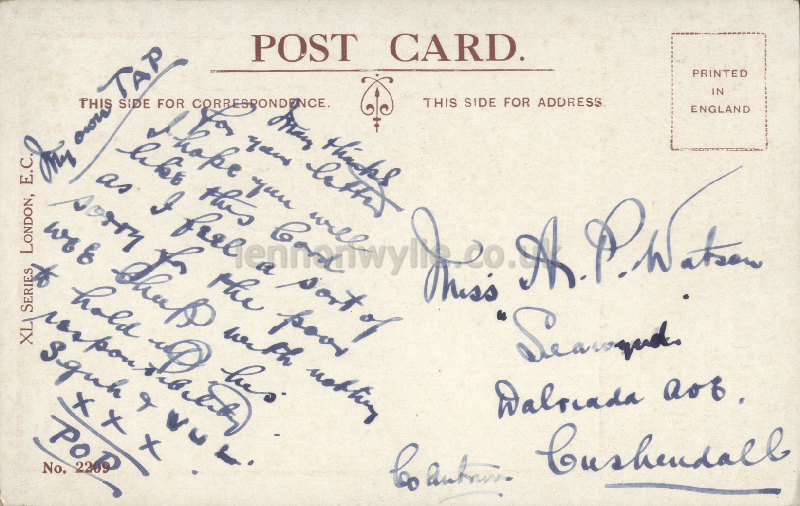 POST CARD.
THIS SIDE FOR CORRESPONDENCE.
THIS SIDE FOR ADDRESS.
PRINTED
IN
ENGLAND
XL SERIES, LONDON, E.C.
My own TAP
Many thanks
for your letter
I hope you will
like this Card
as I feel a sort of
sorry for the poor
WEE Chap with nothing
to hold up his
responsibility
x x x
POP
No. 2209
Miss A. P. Watson
"Seawynd
Dalriada AVE.
Cushendall
Co Antrim
lennonwylie.co.uk